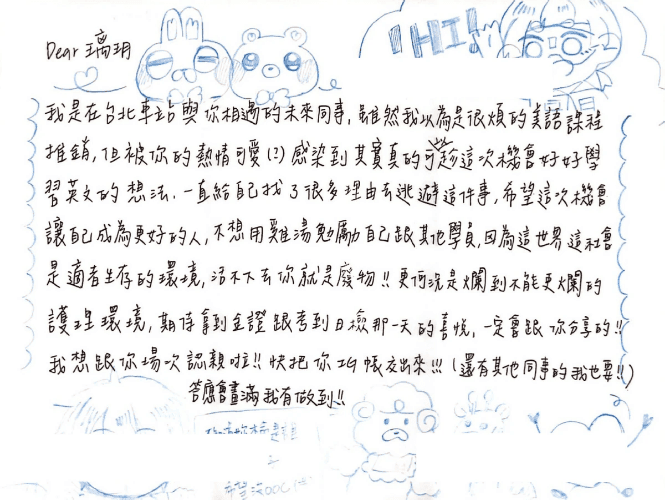 Dear 璃玥
HI!
我是在台北車站與你相遇的未來同事，雖然我以為是很煩的美語課程
推銷，但被你的熱情可愛(!?)感染到其實真的可趁這次機會好好學
習英文的想法.一直給自己找了很多理由去逃避這件事，希望這次機會
讓自己成為更好的人，不想用雞湯勉勵自己跟其他學員，因為這世界這社會
是適者生存的環境，活不下去你就是廢物!!更何況是爛到不能更爛的
護理環境，期待拿到金證跟考到日檢那一天的喜悅，一定會跟你分享的!!
我想跟你場次認親啦!!快把你IG帳交出來!!!(還有其他同事的我也要!!)
答應會畫滿我有做到!!